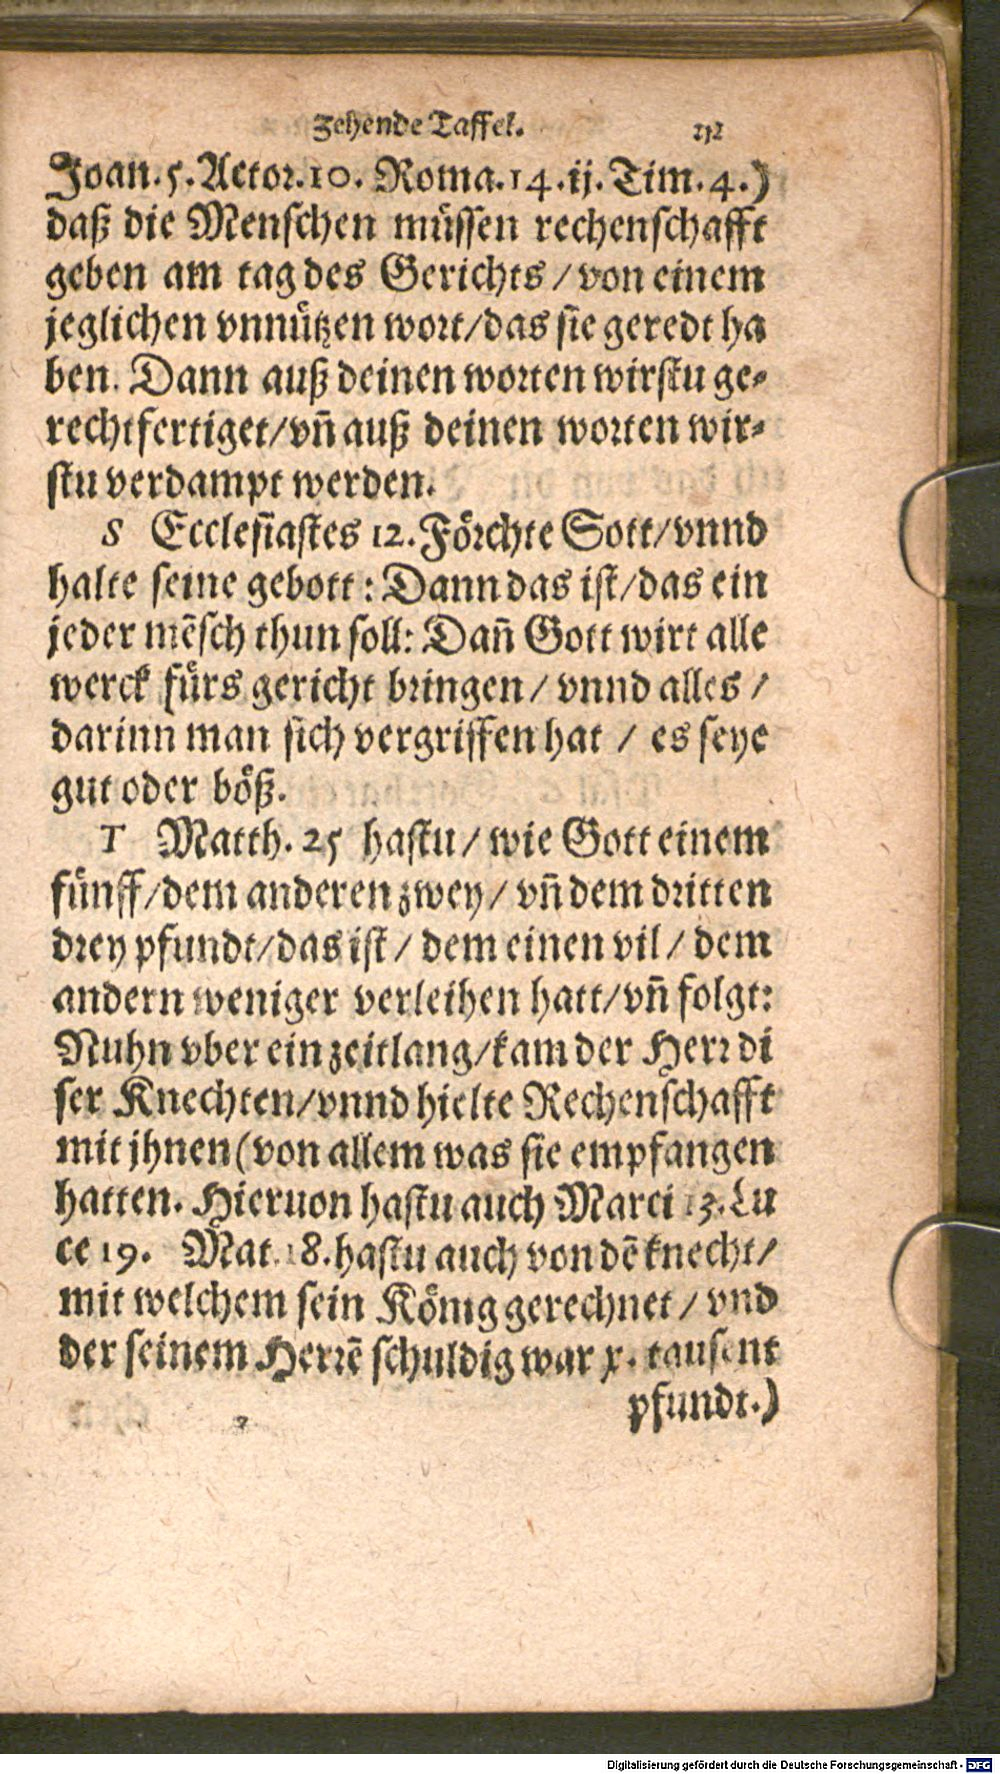 zehende Taffel. 232
Joan. 5. Actor. 10. Roma. 14. ij. Tim. 4.)
daß die Menschen müssen rechenschafft
geben am tag des Gerichts / von einem
jeglichen vnnützen wort / das sie geredt ha
ben. Dann auß deinen worten wirstu ge-
rechtfertiget / vñ auß deinen worten wir-
stu verdampt werden.
S Ecclesiastes 12. Förchte Gott / vnnd
halte seine gebott: Dann das ist / das ein
jeder mẽsch thun soll: Dañ Gott wirt alle
werck fürs gericht bringen / vnnd alles /
darinn man sich vergriffen hat / es seye
gut oder böß.
T Matth. 25 hastu / wie Gott einem
fünff / dem anderen zwey / vñ dem dritten
drey pfundt / das ist / dem einen vil / dem
andern weniger verleihen hatt / vñ folgt:
Nuhn vber ein zeitlang / kam der Herr di
ser Knechten / vnnd hielte Rechenschafft
mit jhnen (von allem was sie empfangen
hatten. Hieruon hastu auch Marci 13. Lu
ce 19. Mat. 18. hastu auch von dẽ knecht /
mit welchem sein König gerechnet / vnd
der seinem Herrẽ schuldig war x. tausent
pfundt.)
Digitalisierung gefördert durch die Deutsche Forschungsgemeinschaft - DFG